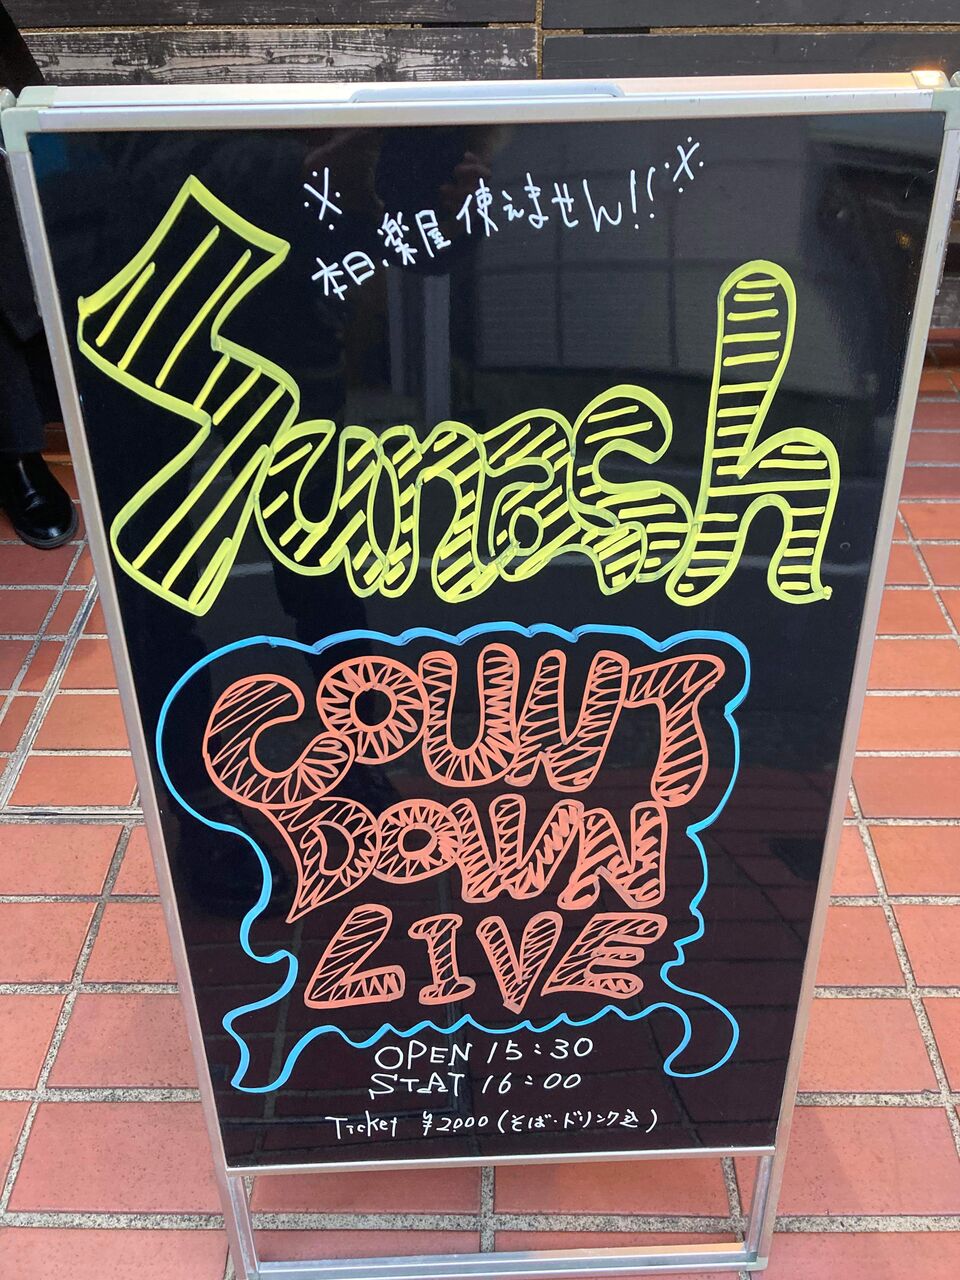 ※本日、楽屋使えません!!※
Sunash
COUNT
DOWN
LIVE
OPEN 15:30
STAT 16:00
Ticket ¥2000(そば・ドリンク込)